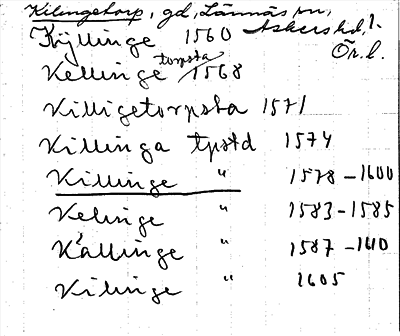 Kilingetorp, gd, Lännäs sn,
Askers hd,
Ör. l.
Kyllinge 1560
Kellinge torpsta 1568
Killigetorpsta 1571
Killinga tpstd 1574
Killinge " 1578-1600
Kelinge " 1583-1585
Kállinge " 1587-1610
Kilinge " 1605